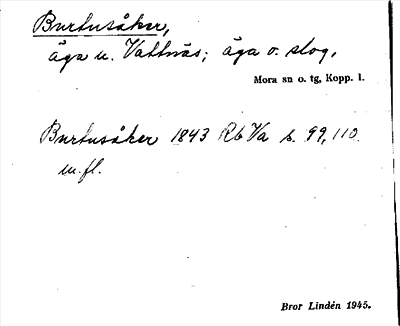 Burtusåker,
äga u. Vattnäs; äga o. skog,
Mora sn o. tg, Kopp. l.
Burtusåker 1843 Rb Va s. 99, 110.
m.fl.
Bror Lindén 1945.